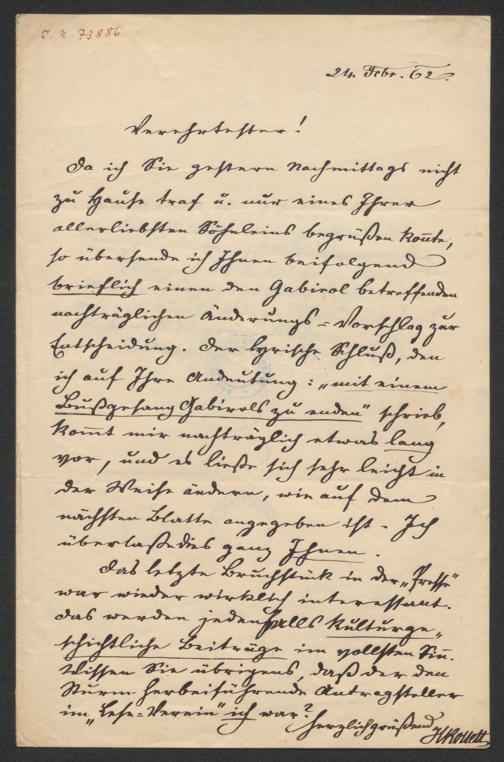 I. N. 73886
24. Febr. 62.
Verehrtester!
Da ich Sie gestern Nachmittags nicht
zu Hause traf u. nur eines Ihrer
allerliebsten Söhnleins begrüßen konnte,
so übersende ich Ihnen beifolgend
brieflich einen den Gabirol betreffenden
nachträglichen Änderungs-Vorschlag zur
Entscheidung. Der lyrische Schluß, den
ich auf Ihre Andeutung: „mit einem
Bußgesang Gabirols zu enden" schrieb,
kommt mir nachträglich etwas lang
vor, und es ließe sich sehr leicht in
der Weise ändern, wie auf dem
nächsten Blatte angegeben ist. Ich
überlasse dies ganz Ihnen.
Das letzte Bruchstück in der „Presse"
war wieder wirklich interessant.
Das werden jedenfalls kulturge-
schichtliche Beiträge im vollsten Sinn.
Wissen Sie übrigens, daß der den
Sturm herbeiführende Antragsteller
im „Lese-Verein" ich war?
Herzlich grüßend
HRollett